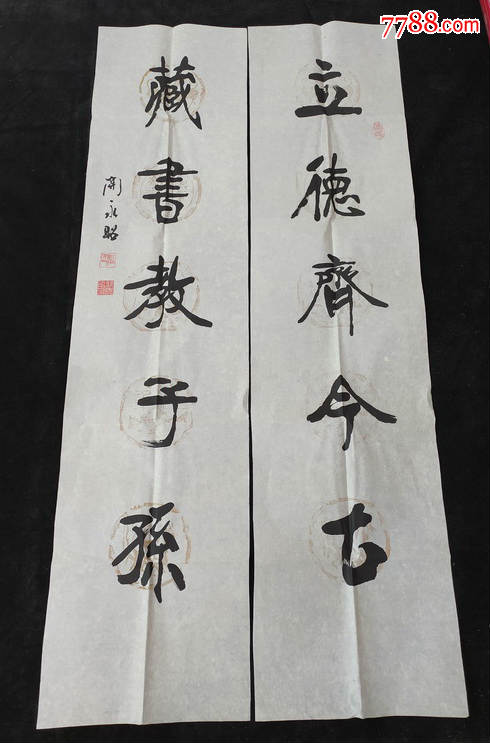 7788.com
立德齊今古
藏書教子孫
永昭